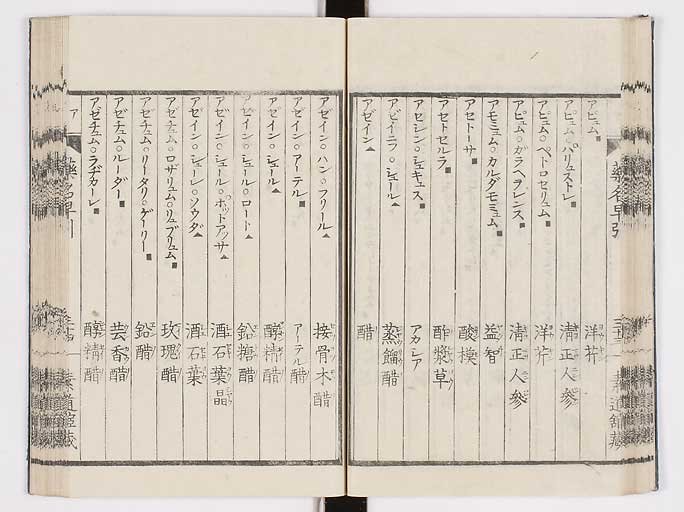 アピュム 洋芹
アピュム○パリュストレ 清正人參
アピュム○ペトロセリュム 洋芹
アピュム○ガラヘヲレンス 清正人參
アモミュム○カルダモミュム 益智
アセトーサ 酸模
アセトセルラ 酢漿草
アセシン○シェキュス アカシア
アゼイニフ○シェール 蒸餾醋
アゼイン 醋
藥名早引
アゼイン○ハン○フリール 接骨木醋
アゼイン○アーテル アーテル醋
アゼイン○シュール 醇精醋
アゼイン○シュール○ロート 鉛糖醋
アゼイン○シュール○ポットアッサ 酒石葉晶
アゼイン○シューレ○ソウダ 酒石葉
アゼチュム○ロザリュム○リュブリュム 玫瑰醋
アゼチュム○リータリ○ゲーリー 鉛醋
アゼチュム○ルーダー 芸香醋
アゼチュム○ラヂカーレ 醇精醋
ア
藥名早引